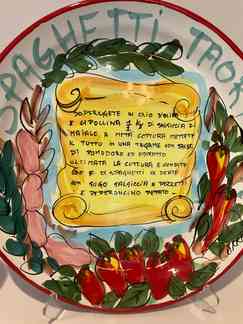 SPAGHETTI
SOFFRIGGETE IN OLIO D'OLIVA
E CIPOLLINA ½ KG DI SALSICCIA DI
MAIALE A METÀ COTTURA METTETE
IL TUTTO IN UN TEGAME CON SALSA
DI POMODORO ED
ULTIMATA LA COTTURA E CONDITE
DI SPAGHETTI AL DENTE
CON SUGO SALSICCIA A PEZZETTI
E PEPERONCINO